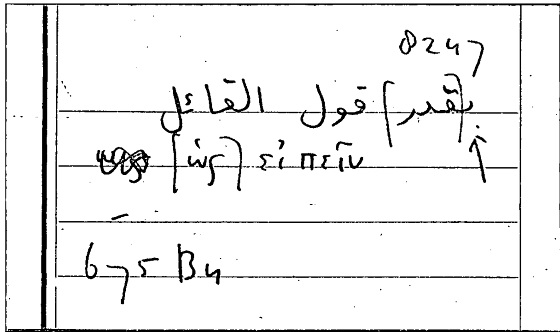 8247
بقدر] قول القائل
[ὡς] εἰπεῖν
675 B4